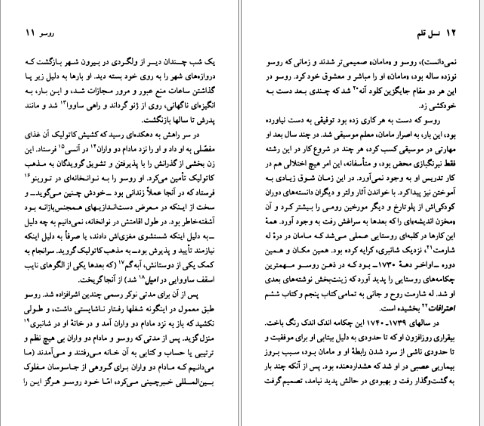 روسو ۱۱
یک شب چندان دیر از ولگردی در بیرون شهر بازگشت که
دروازه‌های شهر را به روی خود بسته دید. او بارها به دلیل زیر پا
گذاشتن ساعات منع عبور و مرور مجازات شد، و این بار، به
انگیزه‌ای ناگهانی، راهی ساووا۱۳ شد و مانند
پدرش تا سالها بازنگشت.
در سر راهش به دهکده‌ای رسید که کشیش کاتولیک آن غذای
مفصلی به او داد و او را نزد مادام دو واران۱۴ در آنسی۱۵ فرستاد. این
زن بخشی از گذرانش را با پذیرفتن و تشویق گرویدگان به مذهب
کاتولیک تأمین می‌کرد. او روسو را به نوانخانه‌ای در تورینو۱۶
فرستاد که در آنجا عملاً زندانی بود ــ خودش چنین می‌گوید ــ و
سخت از اینکه در معرض دست‌اندازیهای همجنس‌بازانه بود
آشفته‌خاطر بود. در طول اقامتش در نوانخانه، نمی‌دانیم به چه دلیل
ــ به دلیل اینکه شستشوی مغزی‌اش دادند، یا صرفاً به دلیل اینکه
نیازمند تأیید و پذیرش بود ــ به مذهب کاتولیک گروید. سرانجام به
کمک یکی از دوستانش، آبه گم۱۷ (که بعدها یکی از الگوهای نایب
اسقف ساووایی در امیل۱۸ شد) از آنجا گریخت.
پس از آن برای مدتی نوکر رسمی چندین اشرافزاده شد. روسو
طبق معمول در این‌گونه شغلها رفتار ناشایستی داشت، و طولی
نکشید که باز به نزد مادام دو واران آمد و در خانهٔ او در شانبری۱۹
منزل گزید. پس از مدتی که روسو و مادام دو واران بی هیچ نظم و
ترتیبی یا حساب و کتابی به آن خانه می‌رفتند و می‌آمدند (ما
می‌دانیم که مادام دو واران برای گروهی از جاسوسان مفلوک
بین‌المللی خبرچینی می‌کرد، امّا خود روسو هرگز این را
۱۲ نسل قلم
نمی‌دانست)، روسو و «مامان» صمیمی‌تر شدند و زمانی که روسو
نوزده ساله بود، «مامان» او را مباشر و معشوق خود کرد. روسو در
این هر دو مقام جایگزین کلود آنه۲۰ شد که چندی بعد دست به
خودکشی زد.
روسو که دست به هر کاری زده بود توفیقی به دست نیاورده
بود، این بار، به اصرار مامان، معلم موسیقی شد. در چند سال بعد او
مهارتی در موسیقی کسب کرد، هر چند در شروع کار در این رشته
فقط نیرنگبازی محض بود، و متأسفانه، این امر هیچ اختلالی هم در
کار تدریس او به وجود نمی‌آورد. در این زمان شوق زیادی به
آموختن نیز پیدا کرد. با خواندن آثار ولتر و دیگران دانسته‌های دوران
کودکی‌اش از پلوتارخ و دیگر مورخین رومی را بیشتر کرد و آن
«مخزن اندیشه‌ای را که بعدها به سراغش رفت به وجود آورد. همهٔ
این کارها در کلبه‌ای روستایی عملی می‌شد که مامان در درهٔ له
شارمت۲۱، نزدیک شانبری، کرایه کرده بود. همین مکان و همین
دوره ــ اواخر دههٔ ۱۷۳۰ ــ بود که در ذهن روسو مهمترین
چکامه‌های روستایی را پدید آورد که زینت‌بخش نوشته‌های بعدی
او شد. له شارمت روح و جانی به تمامی کتاب پنجم و کتاب ششم
اعترافات۲۲ بخشیده است.
در سالهای ۱۷۳۹-۱۷۴۰ این چکامه اندک اندک رنگ باخت.
بیقراری روزافزون او که تا حدودی به دلیل بیتابی او برای موفقیت و
تا حدودی ناشی از سرد شدن رابطهٔ او و مامان بود، سبب بروز
بیماری عصبی در او شد که هشداردهنده بود. پس از آنکه چند بار
به گشت‌وگذار رفت و بهبودی در حالش پدید نیامد، تصمیم گرفت